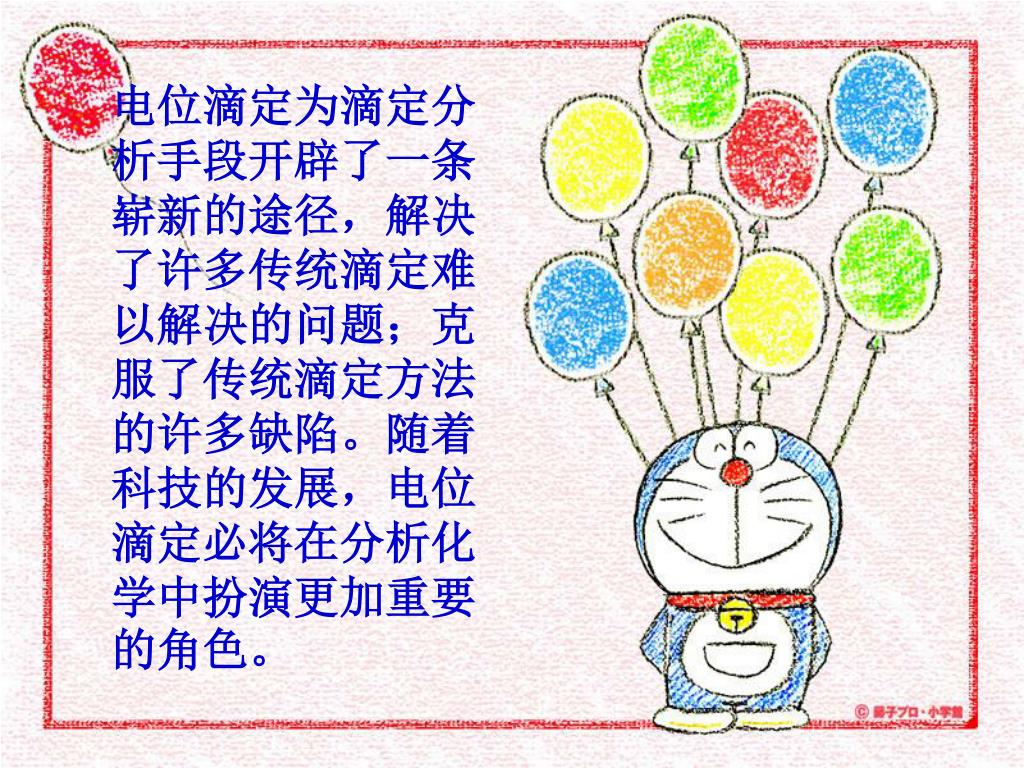 电位滴定为滴定分
析手段开辟了一条
崭新的途径，解决
了许多传统滴定难
以解决的问题；克
服了传统滴定方法
的许多缺陷。随着
科技的发展，电位
滴定必将在分析化
学中扮演更加重要
的角色。
© 藤子プロ・小学館